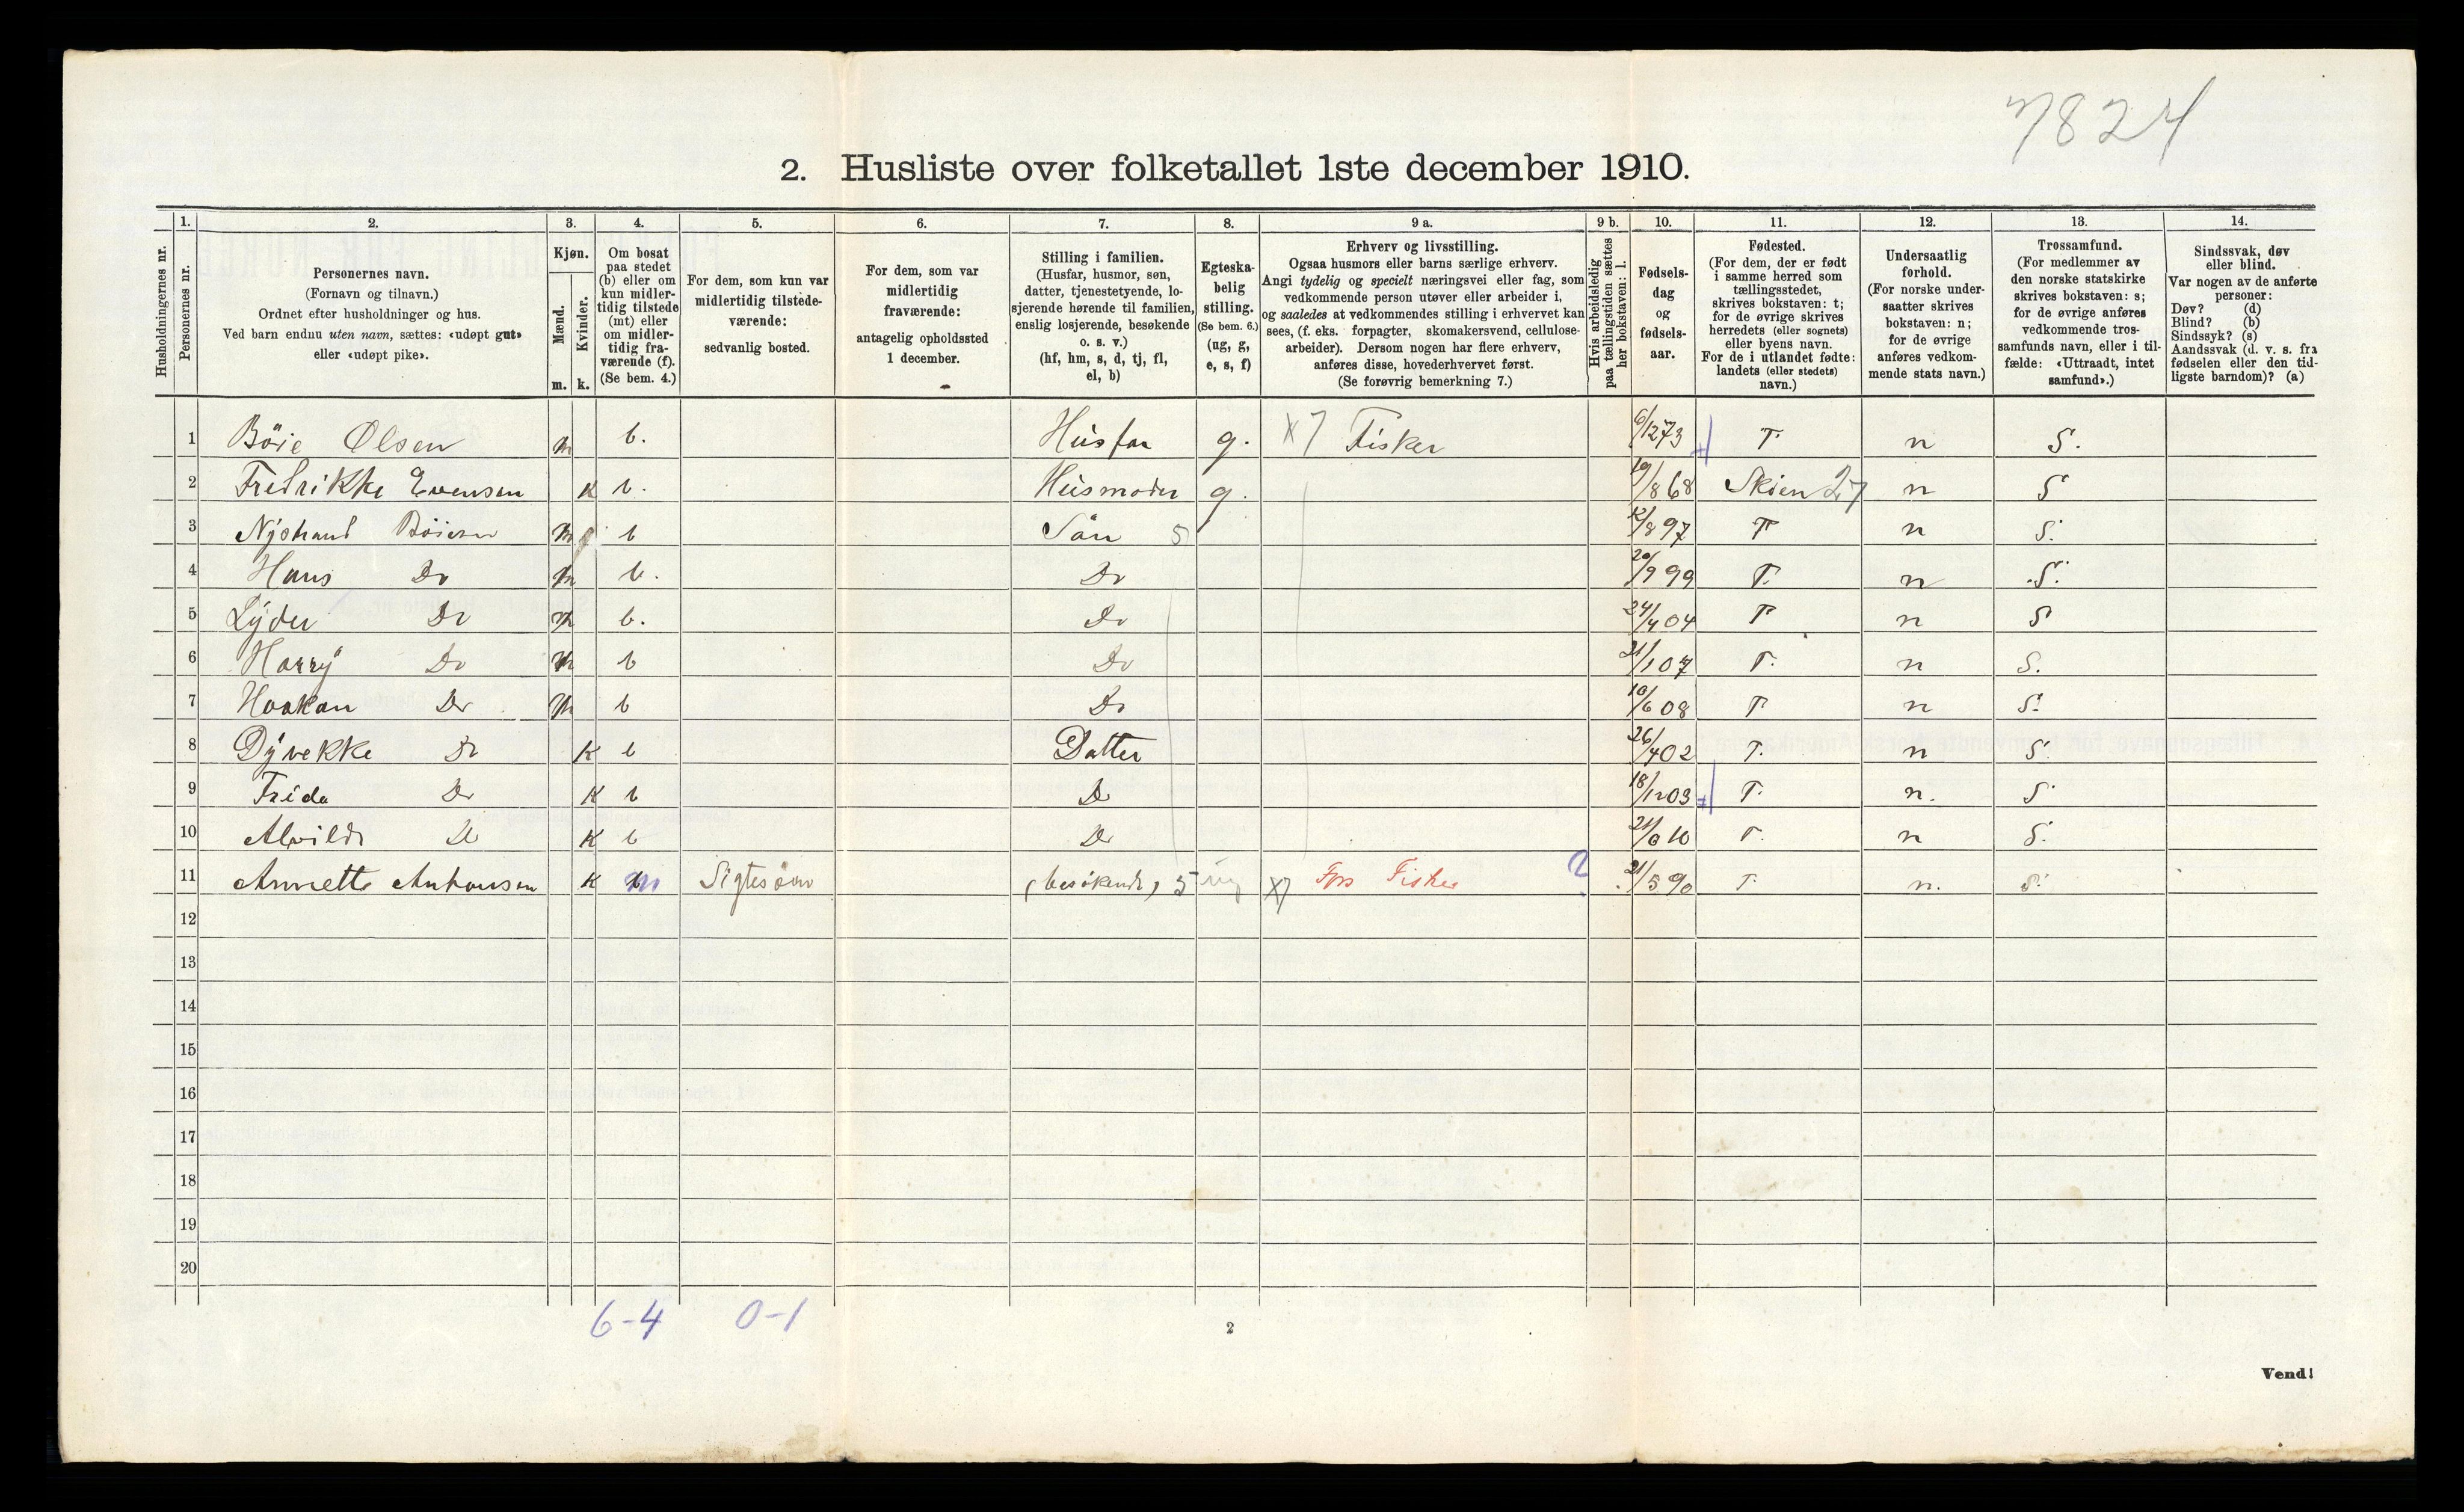 7824
2. Husliste over folketallet 1ste december 1910.
Husholdningernes nr.
1.
Personernes nr.
2.
Personernes navn.
(Fornavn og tilnavn.)
Ordnet efter husholdninger og hus.
Ved barn endnu uten navn, sættes: «udøpt gut»
eller «udøpt pike».
3.
Kjøn.
Mænd.
m.
Kvinder.
k.
4.
Om bosat
paa stedet
(b) eller om
kun midler-
tidig tilstede
(mt) eller
om midler-
tidig fra-
værende (f).
(Se bem. 4.)
5.
For dem, som kun var
midlertidig tilstede-
værende:
sedvanlig bosted.
6.
For dem, som var
midlertidig
fraværende:
antagelig opholdssted
1 december.
7.
Stilling i familien.
(Husfar, husmor, søn,
datter, tjenestetyende, lo-
sjerende hørende til familien,
enslig losjerende, besøkende
o. s. v.)
(hf, hm, s, d, tj, fl,
el, b)
8.
Egteska-
belig
stilling.
(Se bem. 6.)
(ug, g,
e, s, f)
9 a.
Erhverv og livsstilling.
Ogsaa husmors eller barns særlige erhverv.
Angi tydelig og specielt næringsvei eller fag, som
vedkommende person utøver eller arbeider i,
og saaledes at vedkommendes stilling i erhvervet kan
sees, (f. eks. forpagter, skomakersvend, cellulose-
arbeider). Dersom nogen har flere erhverv,
anføres disse, hovederhvervet først.
(Se forøvrig bemerkning 7.)
9 b.
Hvis arbeidsledig
paa tællingstiden sættes
her bokstaven: l.
10.
Fødsels-
dag
og
fødsels-
aar.
11.
Fødested.
(For dem, der er født
i samme herred som
tællingsstedet,
skrives bokstaven: t;
for de øvrige skrives
herredets (eller sognets)
eller byens navn.
For de i utlandet fødte:
landets (eller stedets)
navn.)
12.
Undersaatlig
forhold.
(For norske under-
saatter skrives
bokstaven: n;
for de øvrige
anføres vedkom-
mende stats navn.)
13.
Trossamfund.
(For medlemmer av
den norske statskirke
skrives bokstaven: s;
for de øvrige anføres
vedkommende tros-
samfunds navn, eller i til-
fælde: «Uttraadt, intet
samfund».)
14.
Sindssvak, døv
eller blind.
Var nogen av de anførte
personer:
Døv? (d)
Blind? (b)
Sindssyk? (s)
Aandssvak (d. v. s. fra
fødselen eller den tid-
ligste barndom)? (a)
1 Böie Olsen m b. Husfar g. X7 Fisker 6/12 73 T n S.
2 Fredrikke Evensen K b. Husmoder g. 19/8 68 Skien 27 n S
3 Böiesen m b Sön 5 12/8 97 T n S.
4 Hans Do m b. Do 20/9 99 T. n S.
5 Lÿder Do m b. Do 24/4 04 T n S
6 Harrÿ Do m b Do 21/1 07 T. n S.
7 Haakon Do m b Do 10/6 08 T n S.
8 Dÿvekke Do K b Datter 26/4 02 T. n S.
9 Frida Do K b Do 18/12 03 T. n. S.
10 Alvild Do K b Do 21/6 10 T. n S.
11 Annette Anhonsen K m (besökende) 5 ug X7 Fors Fisker ? 21/5 90 T. n. S.
12
13
14
15
16
17
18
19
20
6-4 0-1
2
Vend!